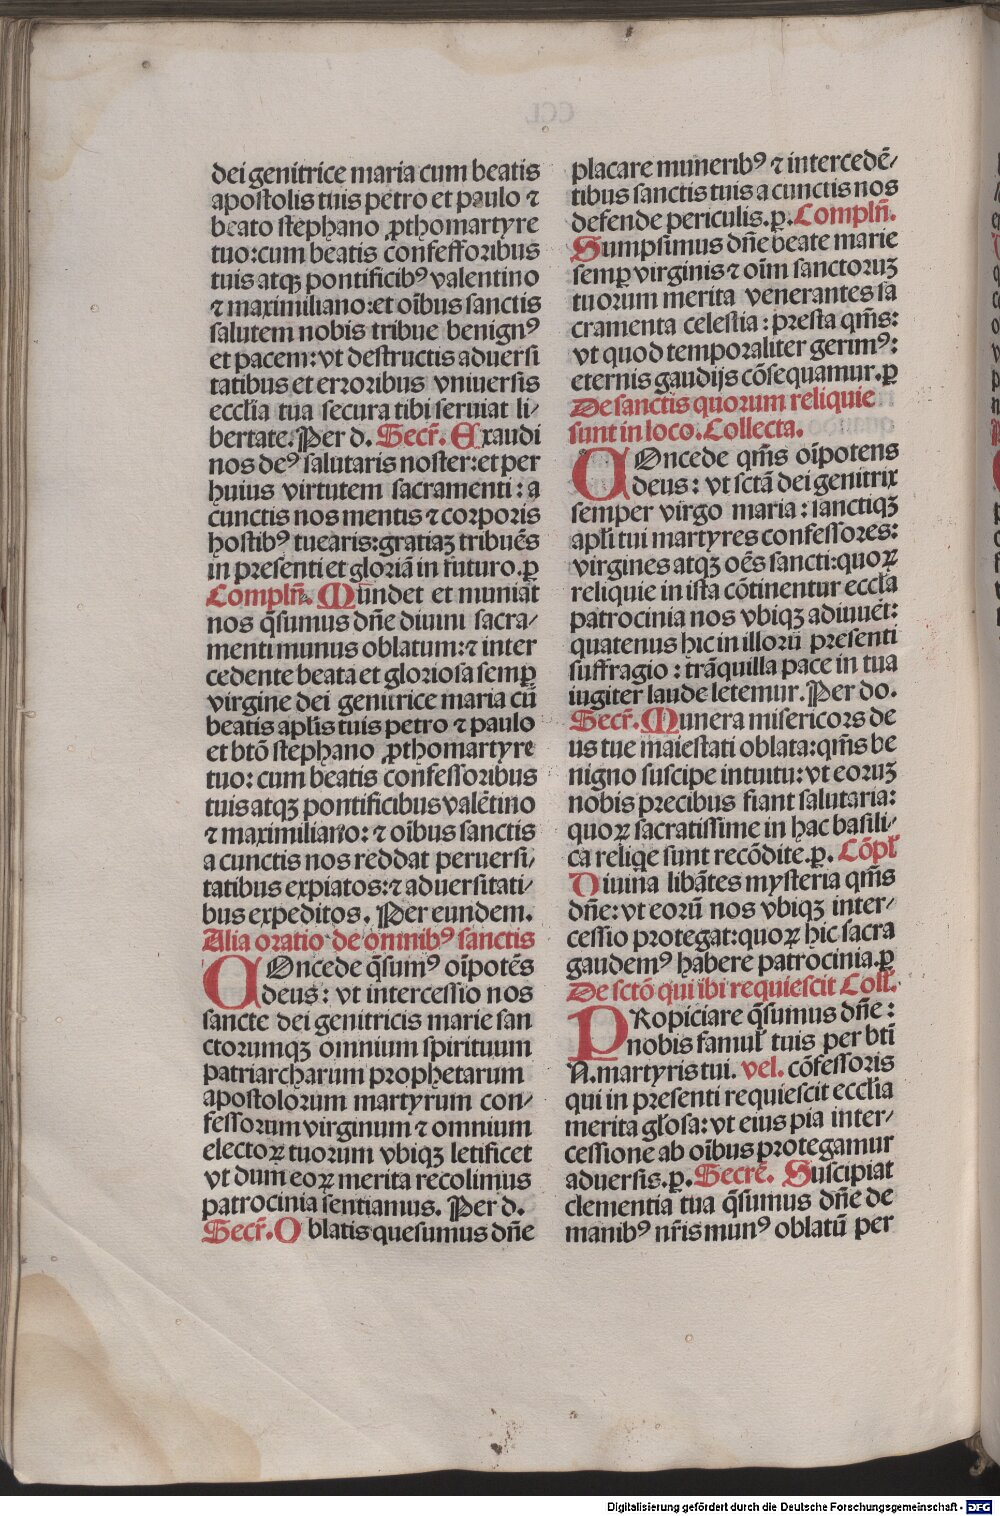 dei genitrice maria cum beatis
apostolis tuis petro et paulo ⁊
beato stephano ꝓthomartyre
tuo: cum beatis confessoribus
tuis atqꝫ pontificibꝰ valentino
⁊ maximiliano: et oībus sanctis
salutem nobis tribue benignꝰ
et pacem: vt destructis aduersi
tatibus et erroribus vniuersis
ecclīa tua secura tibi seruiat li⸗
bertate. Per d. Secr̄. Exaudi
nos deꝰ salutaris noster: et per
huius virtutem sacramenti: a
cunctis nos mentis ⁊ corporis
hostibꝰ tuearis: gratiaꝫ tribuēs
in presenti et gloriā in futuro. ꝑ
Compln̄. Mundet et muniat
nos q̄sumus dn̄e diuini sacra⸗
menti munus oblatum: ⁊ inter
cedente beata et gloriosa semꝑ
virgine dei genitrice maria cū
beatis apl̄is tuis petro ⁊ paulo
et btō stephano ꝓthomartyre
tuo: cum beatis confessoribus
tuis atqꝫ pontificibus valētino
⁊ maximiliano: ⁊ oībus sanctis
a cunctis nos reddat peruersi⸗
tatibus expiatos: ⁊ aduersitati⸗
bus expeditos. Per eundem.
Alia oratio de omnibꝰ sanctis
COncede q̄sumꝰ oīpotēs
deus: vt intercessio nos
sancte dei genitricis marie san
ctorumqꝫ omnium spirituum
patriarcharum prophetarum
apostolorum martyrum con⸗
fessorum virginum ⁊ omnium
electoꝝ tuorum vbiqꝫ letificet
vt dum eoꝝ merita recolimus
patrocinia sentiamus. Per d.
Secr̄. Oblatis quesumus dn̄e
placare muneribꝰ ⁊ intercedē⸗
tibus sanctis tuis a cunctis nos
defende periculis. ꝑ. Compln̄.
Sumpsimus dn̄e beate marie
semꝑ virginis ⁊ oīm sanctoruꝫ
tuorum merita venerantes sa
cramenta celestia: p̄sta qm̄s:
vt quod temporaliter gerimꝰ:
eternis gaudijs cōsequamur. ꝑ
De sanctis quorum reliquie
sunt in loco. Collecta.
COncede qm̄s oīpotens
deus: vt sctā dei genitrix
semper virgo maria: sanctiqꝫ
apl̄i tui martyres confessores:
virgines atqꝫ oēs sancti: quoꝝ
reliquie in ista cōtinentur eccl̄a
patrocinia nos vbiqꝫ adiuuēt:
quatenus hic in illorū presenti
suffragio: trāquilla pace in tua
iugiter laude letemur. Per do.
Secr̄. Munera misericors de
us tue maiestati oblata: qm̄s be
nigno suscipe intuitu: vt eoruꝫ
nobis precibus fiant salutaria:
quoꝝ sacratissime in hac basili⸗
ca reliq̄e sunt recōdite. ꝑ. Cōpl̄
Diuina libātes mysteria qm̄s
dn̄e: vt eorū nos vbiqꝫ inter⸗
cessio protegat: quoꝝ hic sacra
gaudemꝰ habere patrocinia. ꝑ
De sctō qui ibi requiescit Coll̄.
PRopiciare q̄sumus dn̄e:
nobis famul̄ tuis per btī
N. martyris tui. vel. cōfessoris
qui in presenti requiescit ecclīa
merita gl̄osa: vt eius pia inter⸗
cessione ab oībus protegamur
aduersis. ꝑ. Secrē. Suscipiat
clementia tua q̄sumus dn̄e de
manibꝰ nr̄is munꝰ oblatū per
Digitalisierung gefördert durch die Deutsche Forschungsgemeinschaft - DFG